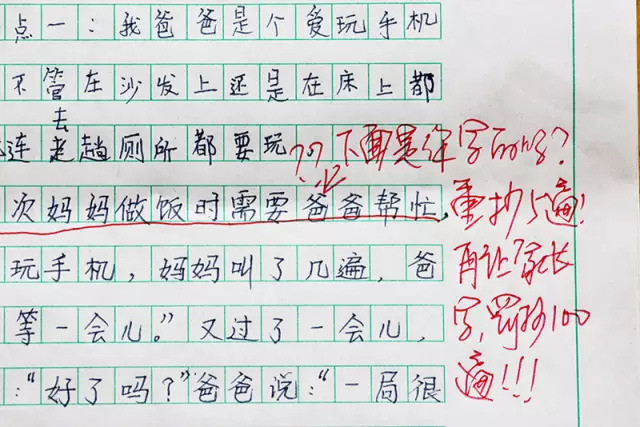 点一：我爸爸是个爱玩手机
不管在沙发上还是在床上都
去
连老趟厕所都要玩
次妈妈做饭时需要爸爸帮忙，
玩手机，妈妈叫了几遍，爸
等一会儿。”又过了一会儿，
：“好了吗？”爸爸说：“一局很
??下面是你写的吗?
重抄5遍!
再让家长
写,罚抄100
遍!!!